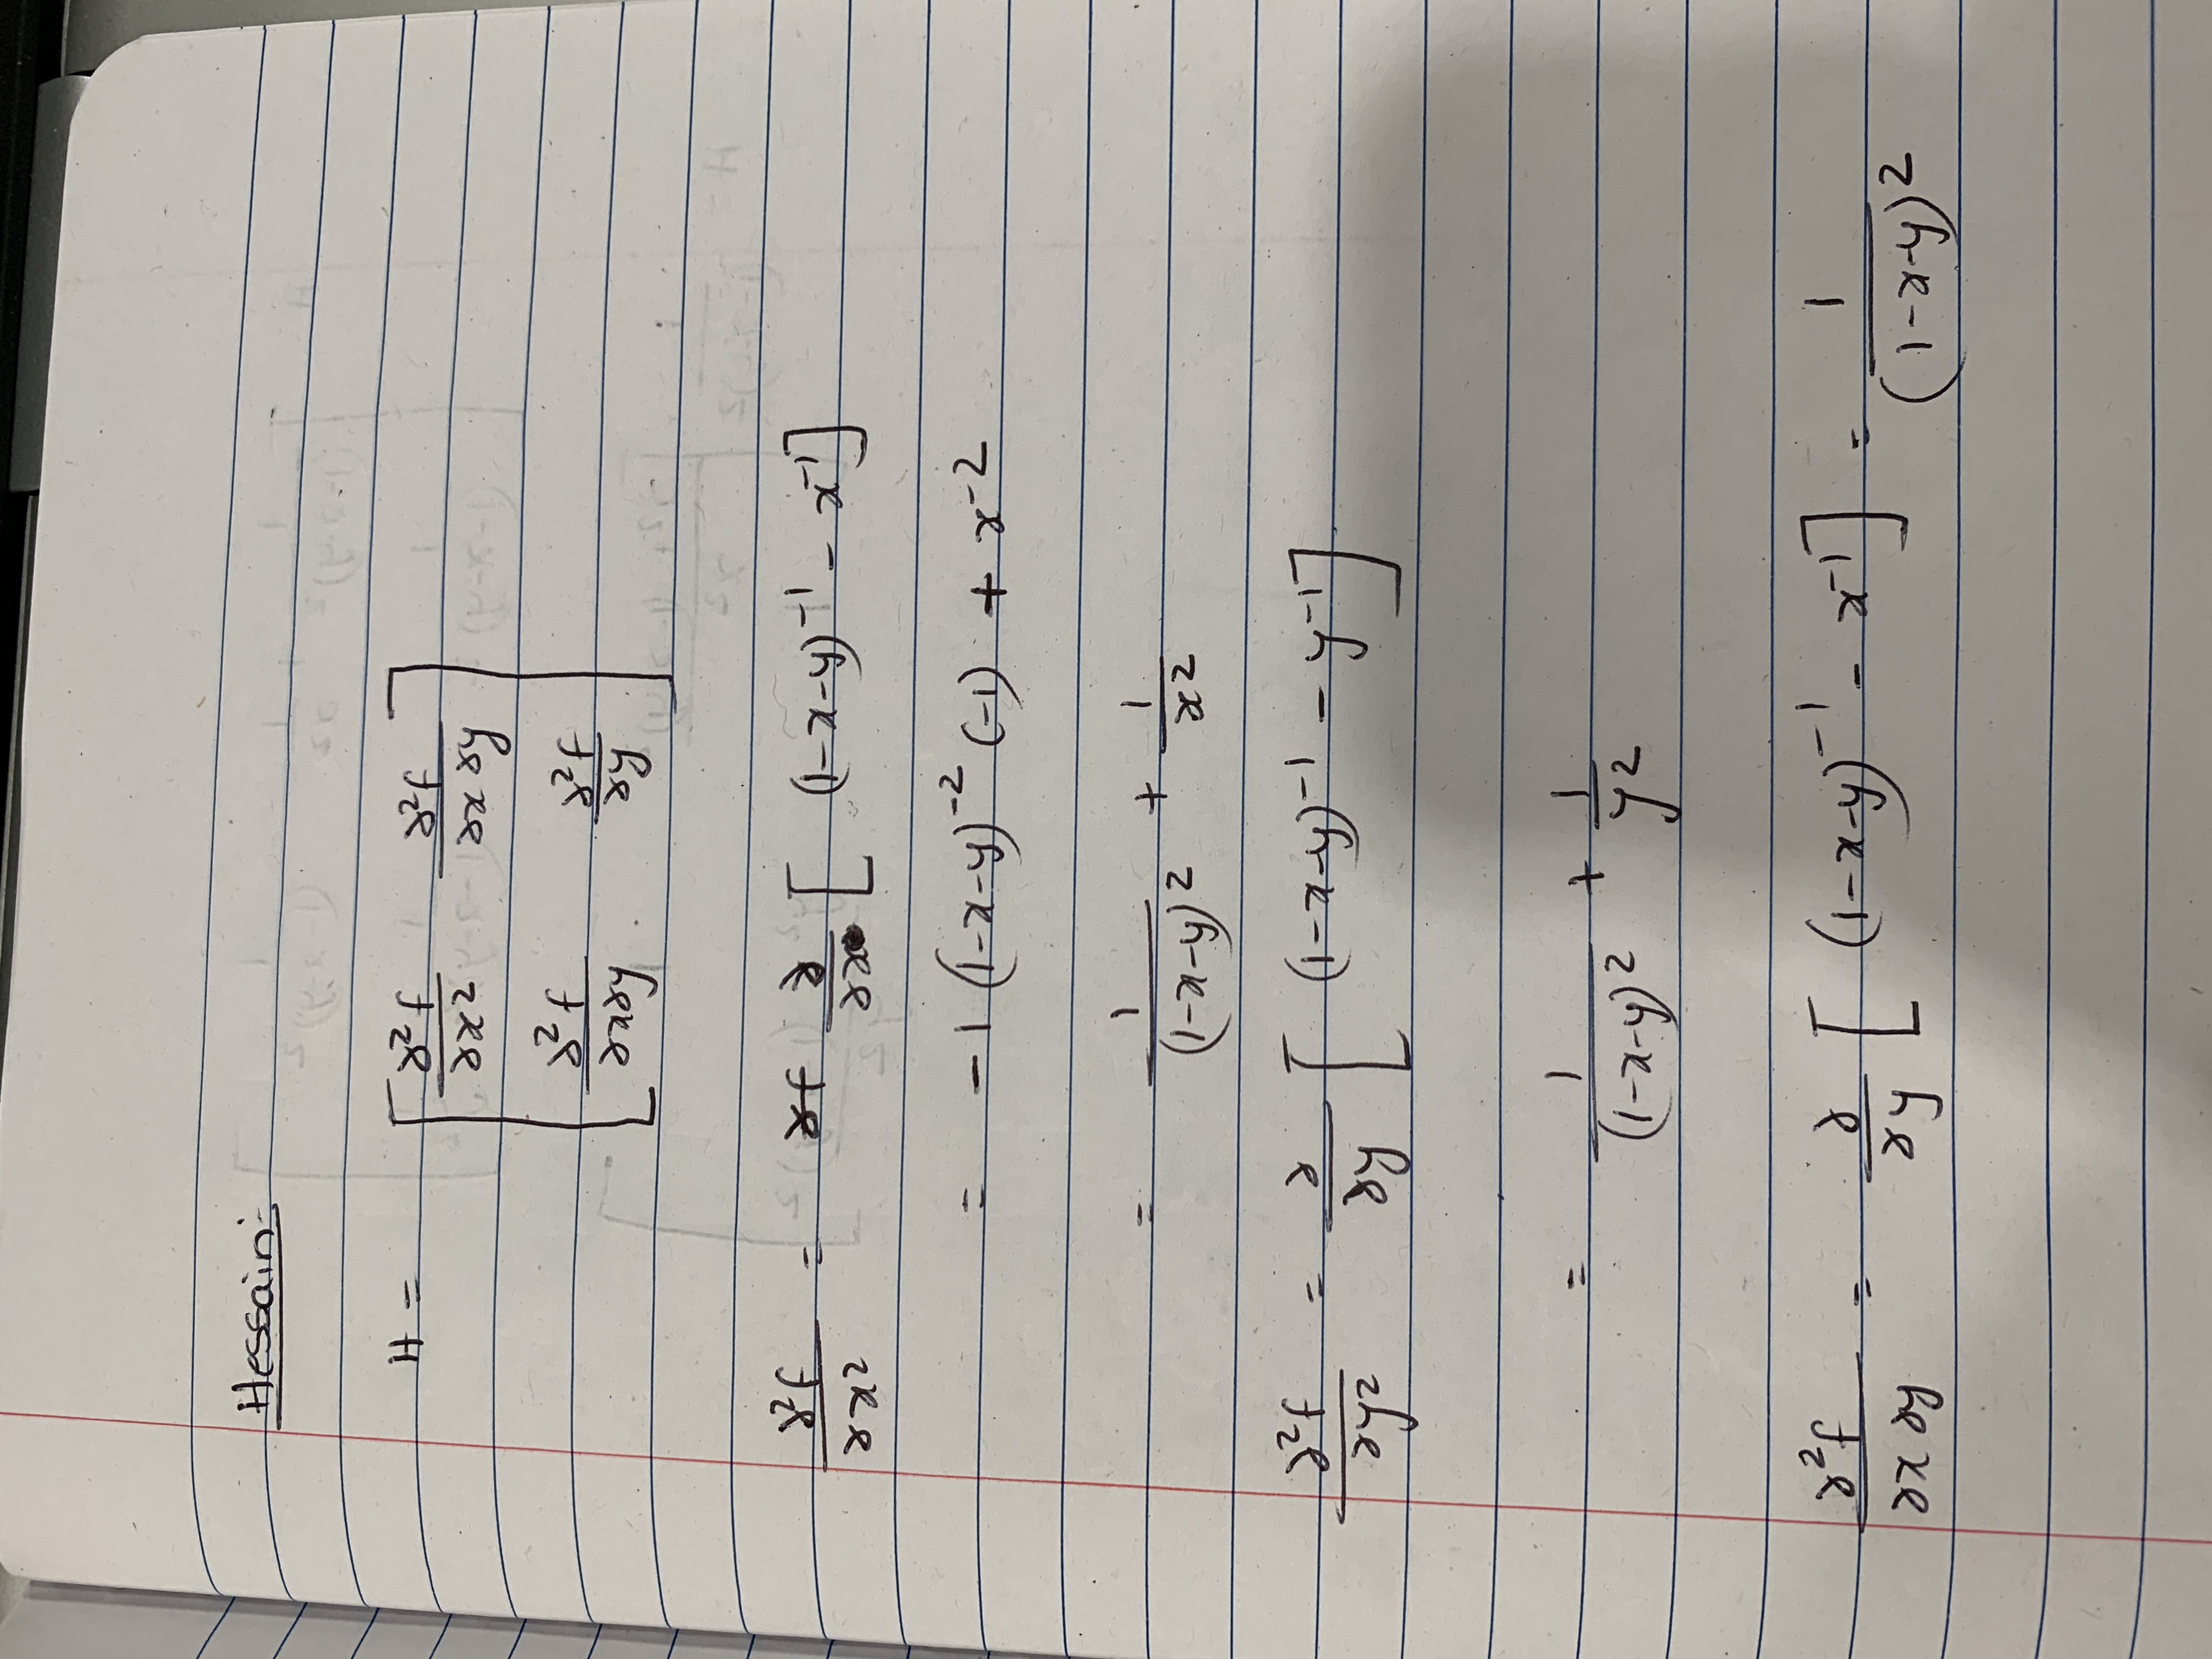 Hessain:
H = [ ∂²f/∂x² ∂²f/∂x ∂y
∂²f/∂x∂y ∂²f/∂y ]
∂²f/∂x² = ∂/∂x [ (1-x-y)⁻¹ - x⁻¹ ]
= -1 (1-x-y)⁻² (-1) + x⁻²
= 1/(1-x-y)² + 1/x²
∂²f/∂y² = ∂/∂y [ (1-x-y)⁻¹ - y⁻¹ ]
= 1/(1-x-y)² + 1/y²
∂²f/∂x ∂y = ∂/∂y [ (1-x-y)⁻¹ - x⁻¹ ] = 1/(1-x-y)²